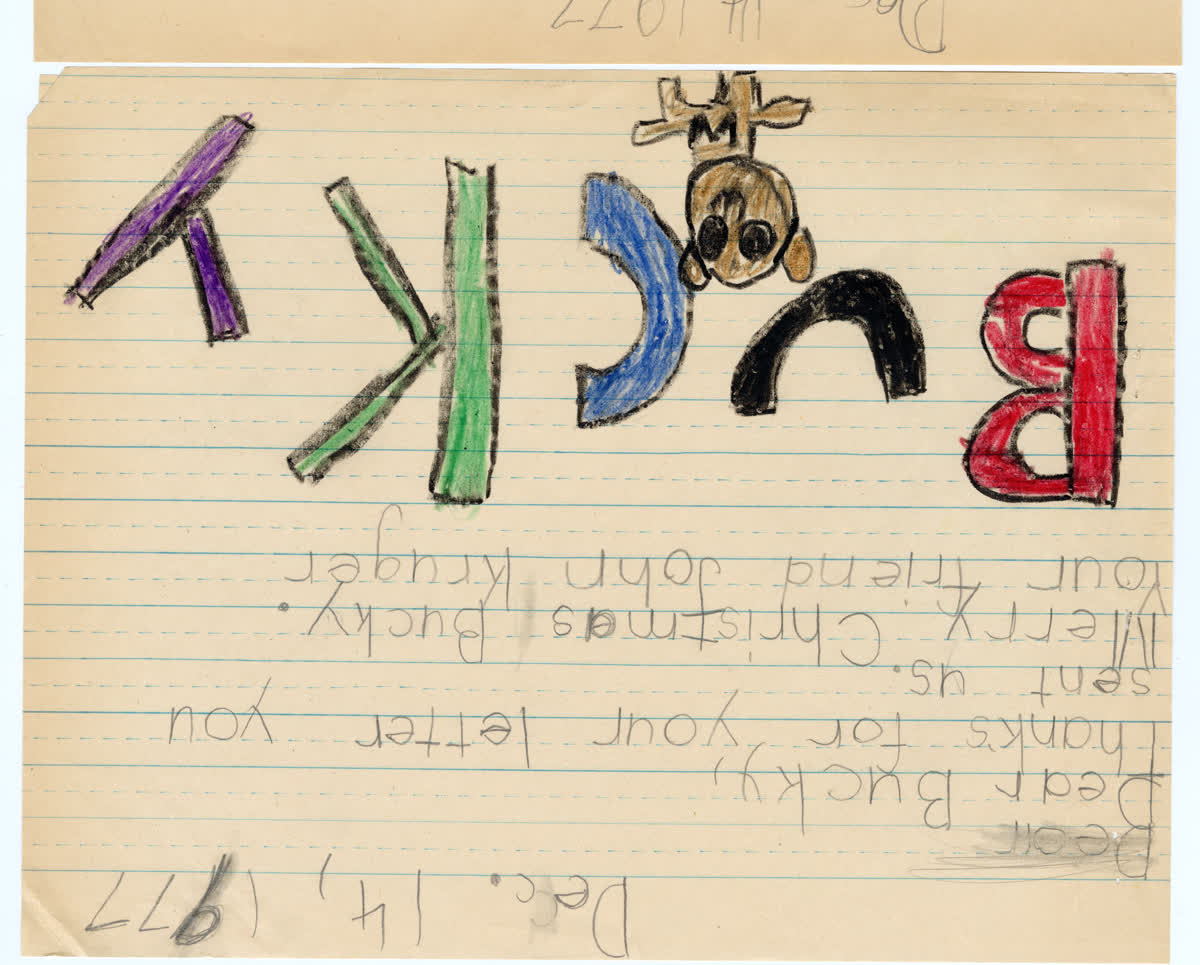 Dec. 14, 1977
Dear Bucky,
Thanks for your letter you
sent us.
Merry Christmas Bucky.
Your friend John Kruger
BUCKY
M
Dec 14 1977